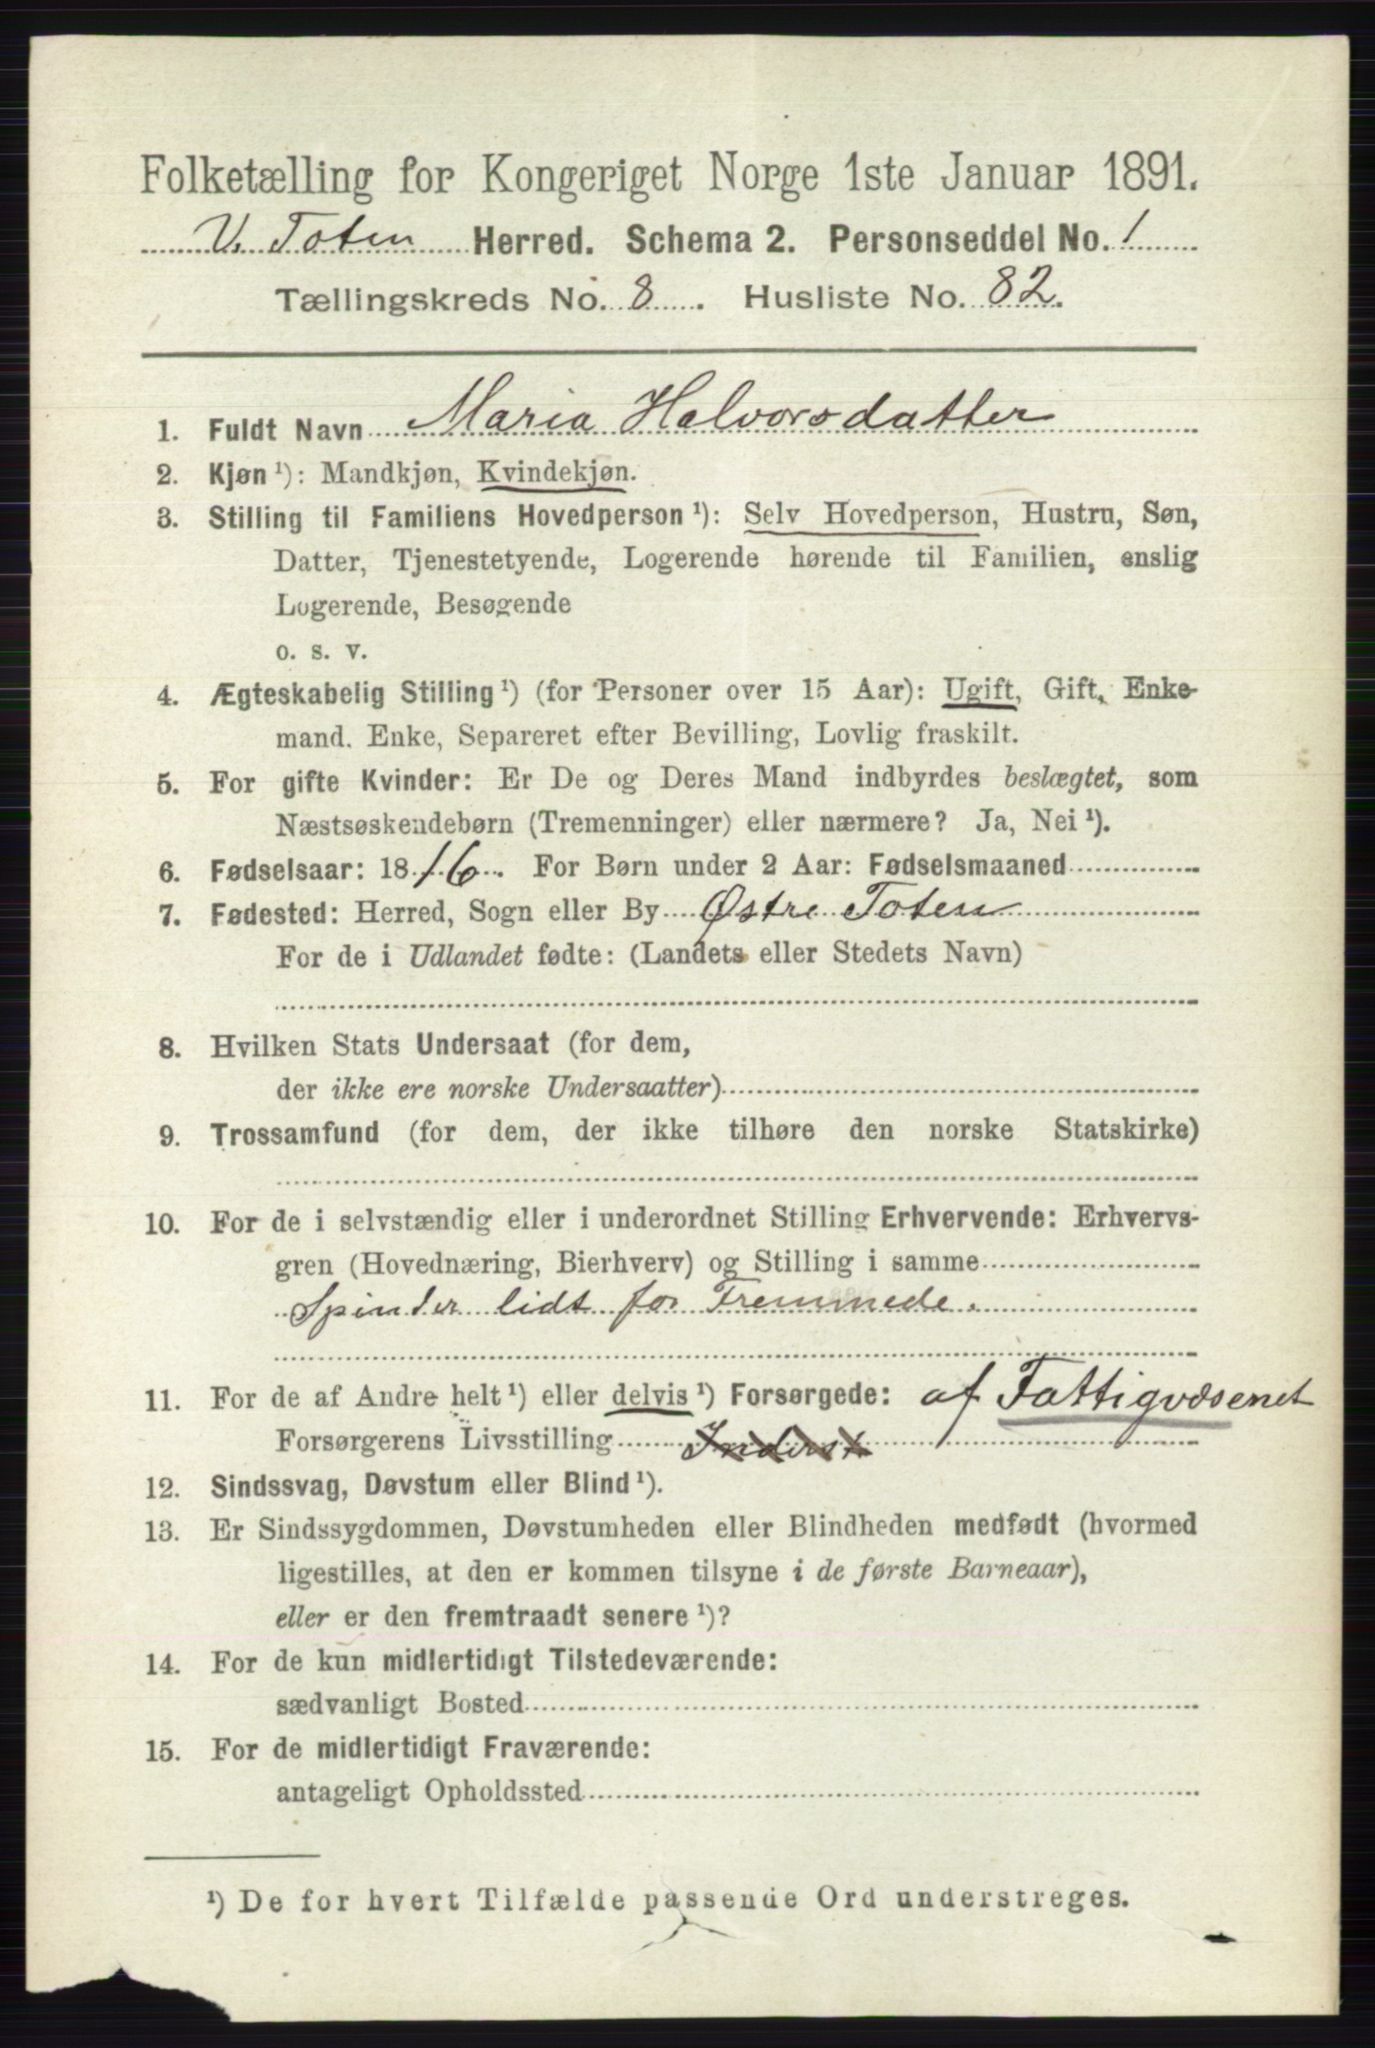 Folketælling for Kongeriget Norge 1ste Januar 1891.
V. Toten Herred. Schema 2. Personseddel No. 1
Tællingskreds No. 8. Husliste No. 82.
1. Fuldt Navn Maria Halvorsdatter
2. Kjøn ¹): Mandkjøn, Kvindekjøn.
3. Stilling til Familiens Hovedperson ¹): Selv Hovedperson, Hustru, Søn,
Datter, Tjenestetyende, Logerende hørende til Familien, enslig
Logerende, Besøgende
o. s. v.
4. Ægteskabelig Stilling ¹) (for Personer over 15 Aar): Ugift, Gift, Enke-
mand. Enke, Separeret efter Bevilling, Lovlig fraskilt.
5. For gifte Kvinder: Er De og Deres Mand indbyrdes beslægtet, som
Næstsøskendebørn (Tremenninger) eller nærmere? Ja, Nei ¹).
6. Fødselsaar: 1816. For Børn under 2 Aar: Fødselsmaaned
7. Fødested: Herred, Sogn eller By Østre Toten
For de i Udlandet fødte: (Landets eller Stedets Navn)
8. Hvilken Stats Undersaat (for dem,
der ikke ere norske Undersaatter)
9. Trossamfund (for dem, der ikke tilhøre den norske Statskirke)
10. For de i selvstændig eller i underordnet Stilling Erhvervende: Erhvervs-
gren (Hovednæring, Bierhverv) og Stilling i samme
Spinder lidt for Fremmede.
11. For de af Andre helt ¹) eller delvis ¹) Forsørgede: af Fattigvæsenet
Forsørgerens Livsstilling Inderst
12. Sindssvag, Døvstum eller Blind ¹).
13. Er Sindssygdommen, Døvstumheden eller Blindheden medfødt (hvormed
ligestilles, at den er kommen tilsyne i de første Barneaar),
eller er den fremtraadt senere ¹)?
14. For de kun midlertidigt Tilstedeværende:
sædvanligt Bosted
15. For de midlertidigt Fraværende:
antageligt Opholdssted
¹) De for hvert Tilfælde passende Ord understreges.